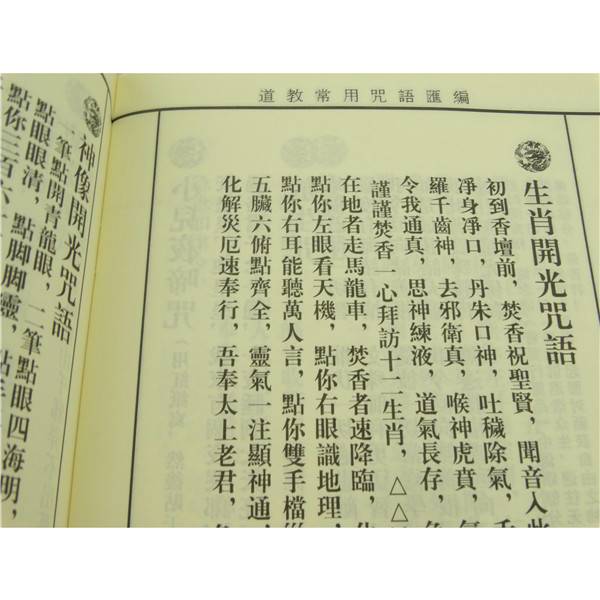 道教常用咒語匯編
生肖開光咒語
初到香壇前，焚香祝聖賢，聞音入此
凈身凈口，丹朱口神，吐穢除氣，舌
羅千齒神，去邪衛真，喉神虎賁，氣
令我通真，思神練液，道氣長存，急
謹謹焚香一心拜訪十二生肖，△△
在地者走馬龍車，焚香者速降臨，
點你左眼看天機，點你右眼識地理，
點你右耳能聽萬人言，點你雙手檔災
五臟六俯點齊全，靈氣一注顯神通，
化解災厄速奉行，吾奉太上老君，急
神像開光咒語
一筆點開青龍眼，二筆點眼四海明，
點眼眼清，點脚脚靈，點手
點你三百六十